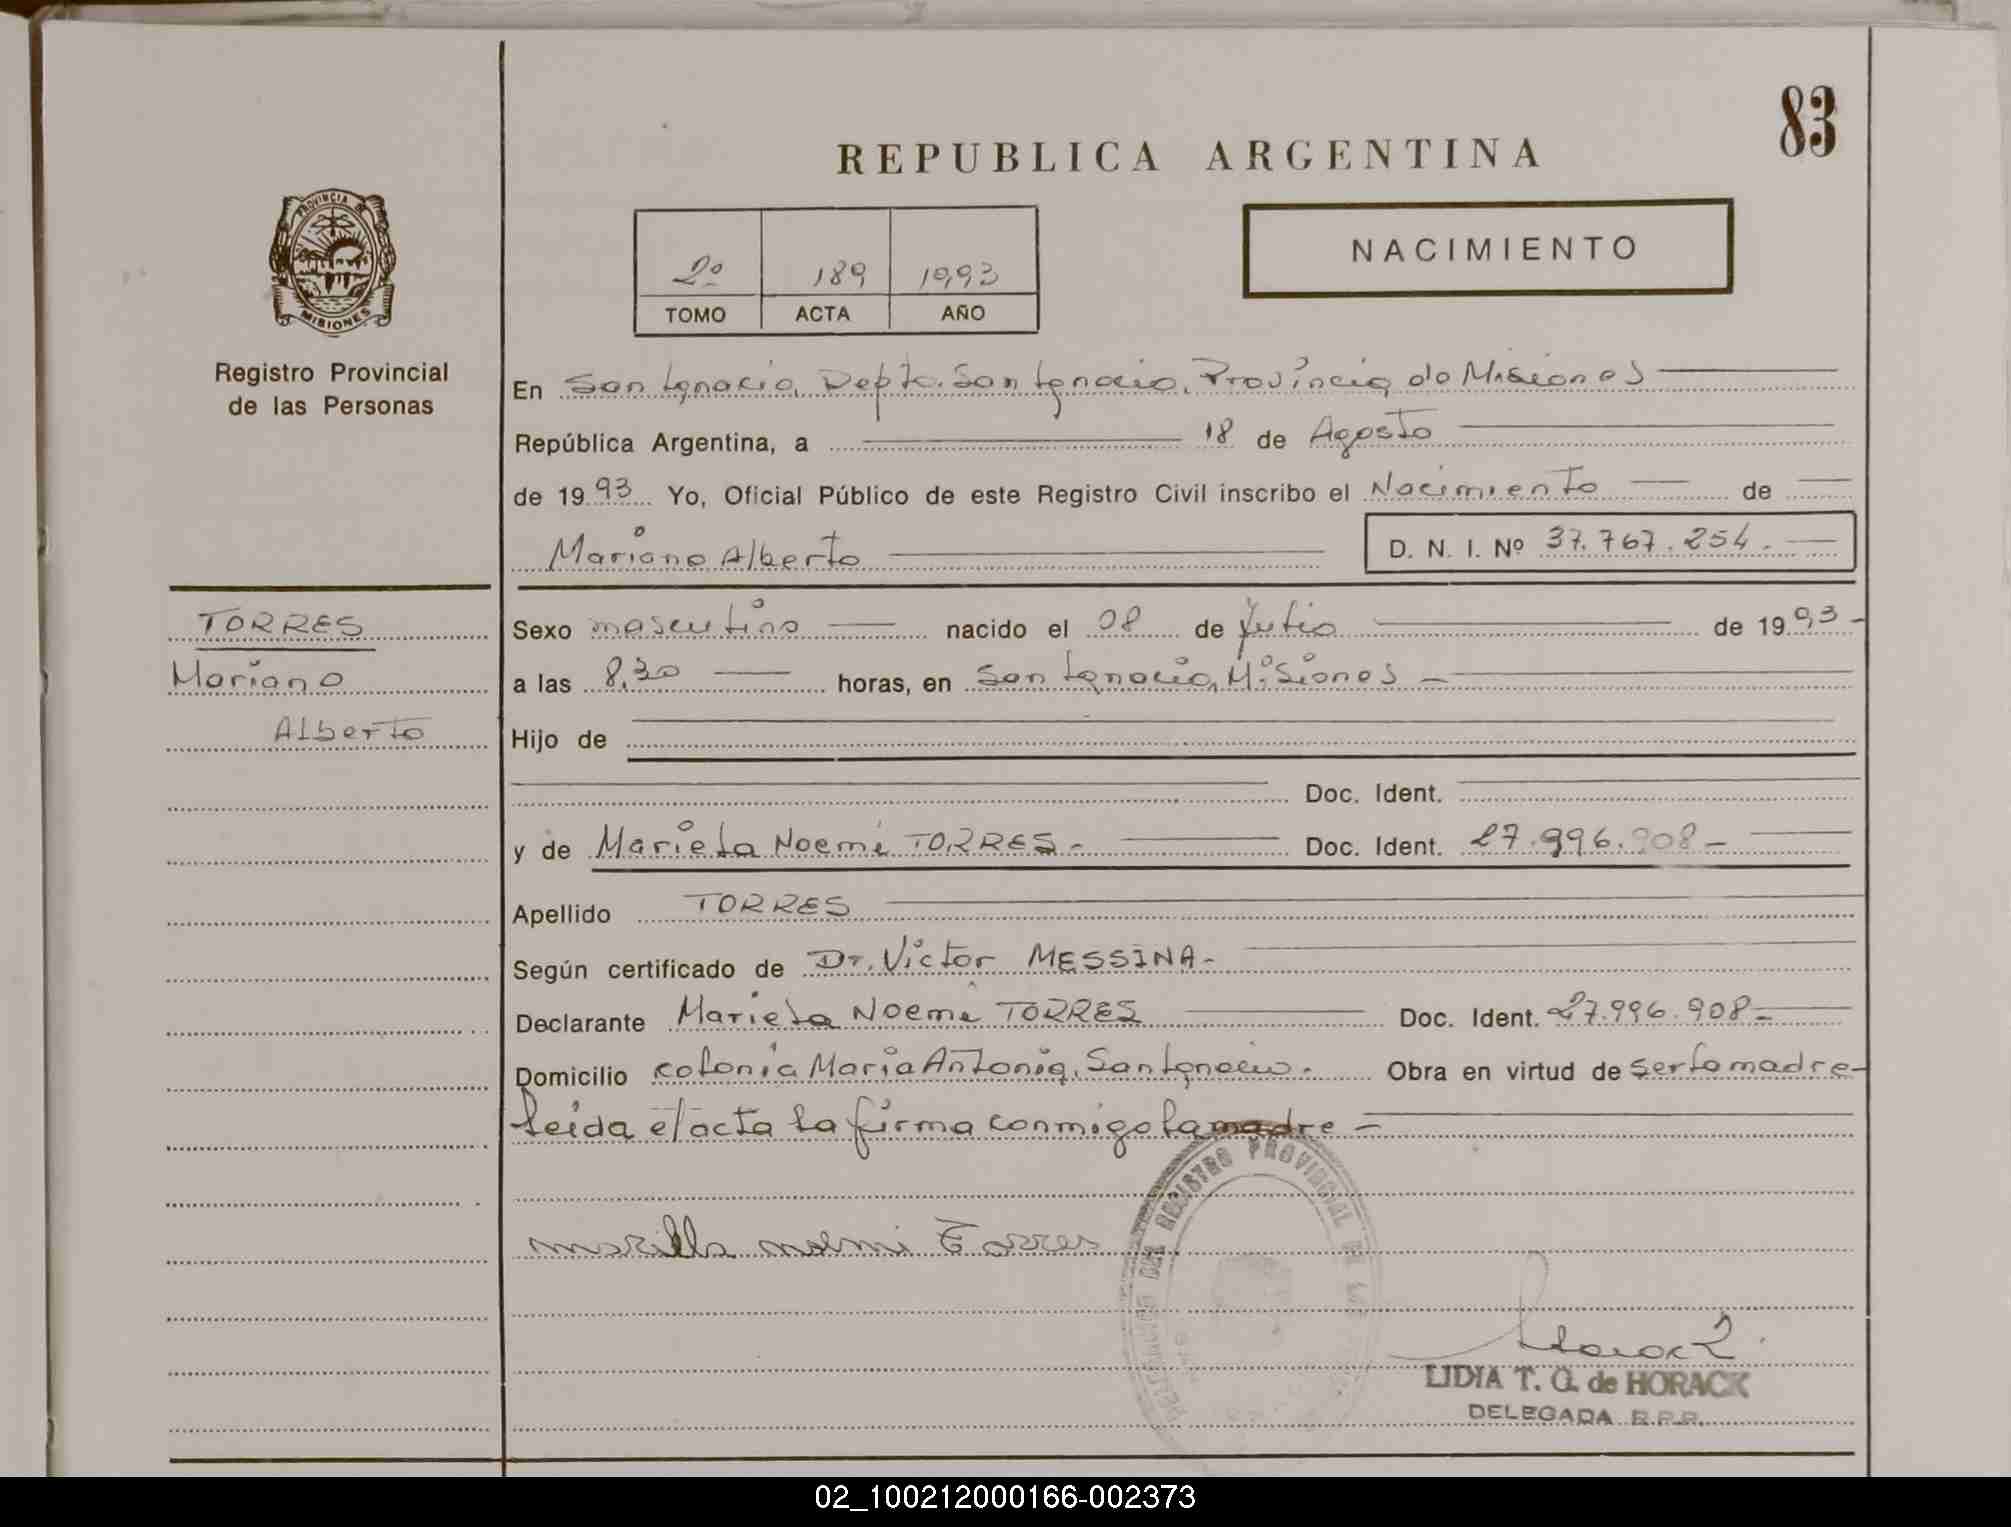 83
REPUBLICA ARGENTINA
PROVINCIA DE
MISIONES
Registro Provincial
de las Personas
2º 189 1993
TOMO ACTA AÑO
NACIMIENTO
En San Ignacio, Depto. San Ignacio, Provincia de Misiones
República Argentina, a 18 de Agosto
de 1993 Yo, Oficial Público de este Registro Civil inscribo el Nacimiento de
Mariano Alberto D. N. I. Nº 37.767.254.
TORRES
Mariano
Alberto
Sexo masculino nacido el 08 de Julio de 1993-
a las 8,30 horas, en San Ignacio, Misiones -
Hijo de
Doc. Ident.
y de Mariela Noemi TORRES- Doc. Ident. 27.996.908-
Apellido TORRES
Según certificado de Dr. Victor MESSINA-
Declarante Mariela Noemi TORRES Doc. Ident. 27.996.908-
Domicilio colonia Maria Antonia, San Ignacio. Obra en virtud de ser la madre-
leida el acta la firma conmigo la madre -
mariela noemi Torres
REGISTRO PROVINCIAL DE
Horack
LIDIA T. G. de HORACK
DELEGADA R.P.P.
02_100212000166-002373